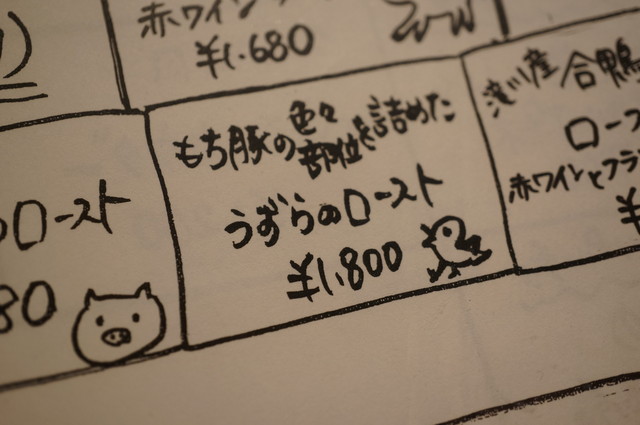 赤ワイン
¥1.680
もち豚の色々部位を詰めた
うずらのロースト
¥1.800
ロースト
80
滝川産 合鴨
ロー
赤ワインとフラ
¥